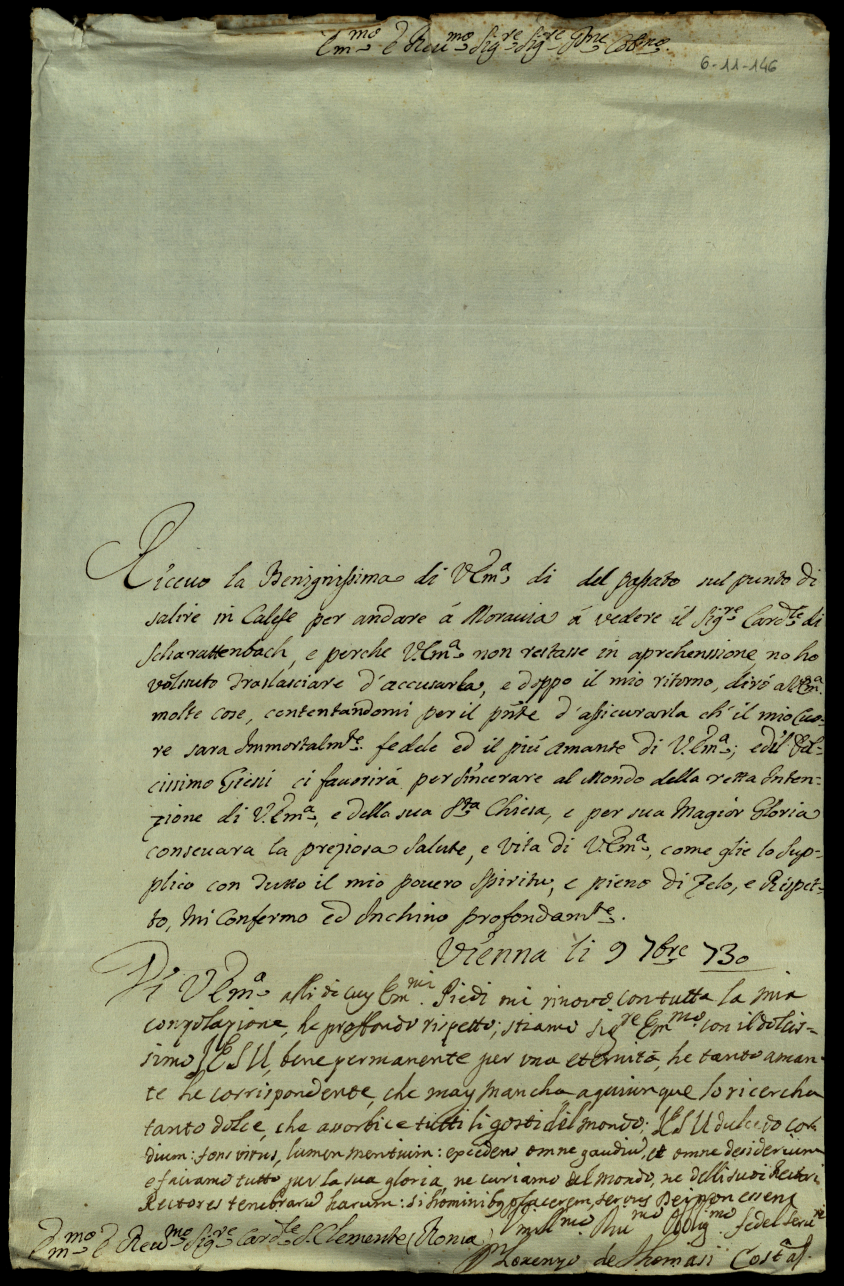 Em.mo è Reu.mo Sig.re Sig.re P̃ne Col̃mo
6-11-146
Riceuo la Benignissima di V.Em.a di del passato sul punto di
salire in Calesse per andare á Morauia á vedere il Sig.re Card.le di
Scharattenbach, e perche V.Em.a non restasse in aprehenssione no ho
volsuto traslasciare d'accusarla, e doppo il mio ritorno, diró a V.Em.a
molte cose, contentandomi per il pñte d'assicurarla ch'il mio Cuo-
re sara Immortalm.te fedele ed il piú amante di V.Em.a; ed il Dol-
cissimo Giesú ci fauorirá per sincerare al Mondo della retta Inten-
zione di V.Em.a, e della sua S.ta Chiesa, e per sua Magior Gloria
conseuara la preziosa Salute, e Vita di V.Em.a, come glie lo Sup-
plico con tutto il mio pouero Spiritu, e pieno di Zelo, e Rispet-
to, Mi Confermo ed Inchino profondam.te.
Vienna li 9 7bre 730
Di V.Em.a alli di cuy Em.mi Piedi mi rinovo con tutta la mia
consolazione, he proffondo rispetto; stiamo Sig.re Em.mo con il dolcis-
simo JESU, bene permanente per una eternitá, he tanto aman-
te he corrispondente, che may mancha a quiunque lo ricercha
tanto dolce, che assorbice tutti li gosti del mondo: JESU dulcedo cor-
dium: fons vivus, lumen mentium: excedens omne gaudiu, et omne desiderium
e faciamo tutto per la sua gloria, ne curiamo del mondo, ne delli suoi Rectori
Rectores tenebraru harum: si hominibus placerem, servus Dei non essem
Hu.mo Oblig.mo fedel seru.re
Lorenzo de Thomasi Cost.a
Em.mo è Reu.mo Sig.re Card.le S. Clemente (Roma)